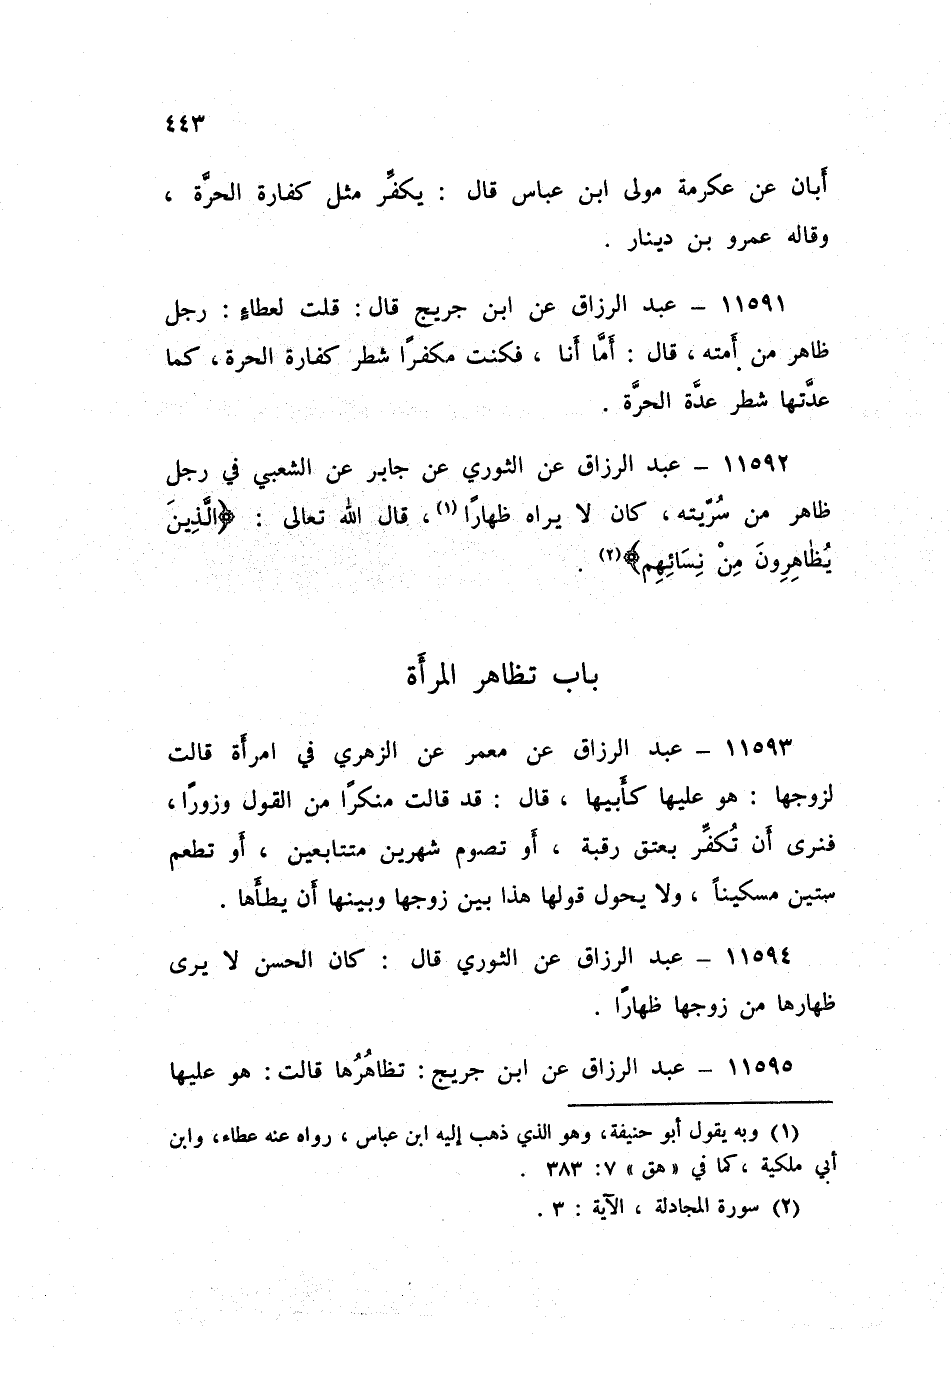 ٤٤٣
أَبان عن عكرمة مولى ابن عباس قال : يكفِّر مثل كفارة الحرَّة ،
وقاله عمرو بن دينار .
١١٥٩١ – عبد الرزاق عن ابن جريج قال : قلت لعطاءٍ : رجل
ظاهر من أَمته ، قال : أَمَّا أَنا ، فكنت مكفرًا شطر كفارة الحرة ، كما
عدَّتها شطر عدَّة الحرَّة .
١١٥٩٢ – عبد الرزاق عن الثوري عن جابر عن الشعبي في رجل
ظاهر من سُرّيته ، كان لا يراه ظهارًا (١) ، قال الله تعالى : ﴿الَّذِينَ
يُظَاهِرِونَ مِنْ نِسَائِهِم﴾ (٢) .
باب تظاهر المرأَة
١١٥٩٣ – عبد الرزاق عن معمر عن الزهري في امرأَة قالت
لزوجها : هو عليها كأَبيها ، قال : قد قالت منكرًا من القول وزورًا ،
فنرى أَن تُكفِّر بعتق رقبة ، أَو تصوم شهرين متتابعين ، أَو تطعم
ستين مسكيناً ، ولا يحول قولها هذا بين زوجها وبينها أَن يطأَها .
١١٥٩٤ – عبد الرزاق عن الثوري قال : كان الحسن لا يرى
ظهارها من زوجها ظهارًا .
١١٥٩٥ – عبد الرزاق عن ابن جريج : تظاهُرُها قالت : هو عليها
(١) وبه يقول أبو حنيفة ، وهو الذي ذهب إليه ابن عباس ، رواه عنه عطاء ، وابن
أبي ملكية ، كما في « هق » ٧ : ٣٨٣ .
(٢) سورة المجادلة ، الآية : ٣ .